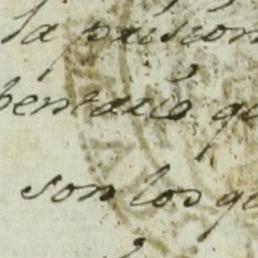 la prision
bentario q
son los q